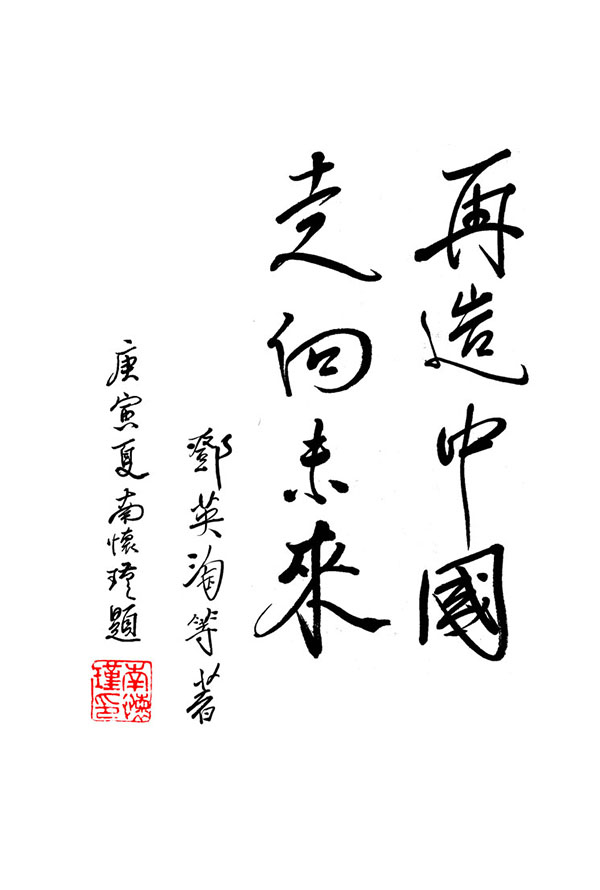 再造中國
走向未來
鄧英淘等著
庚寅夏南懷瑾題
南懷瑾印